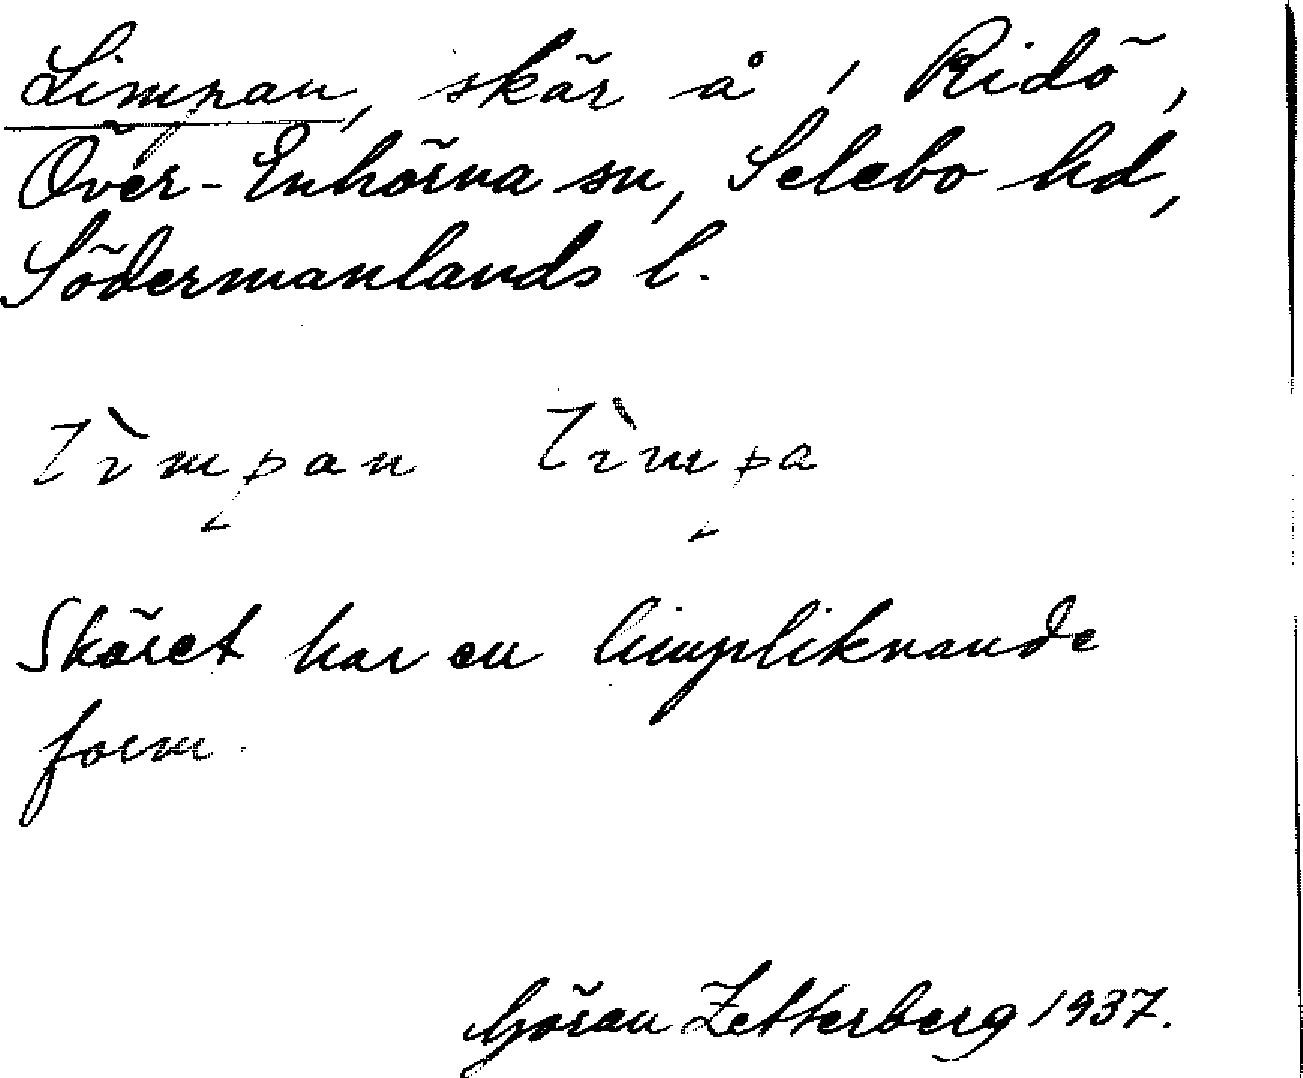 Limpan, skär å / Ridö,
Över-Enhörna sn, Selebo hd,
Södermanlands l.
lìmpan lìmpa
Skäret har en limpliknande
form.
Göran Zetterberg 1937.